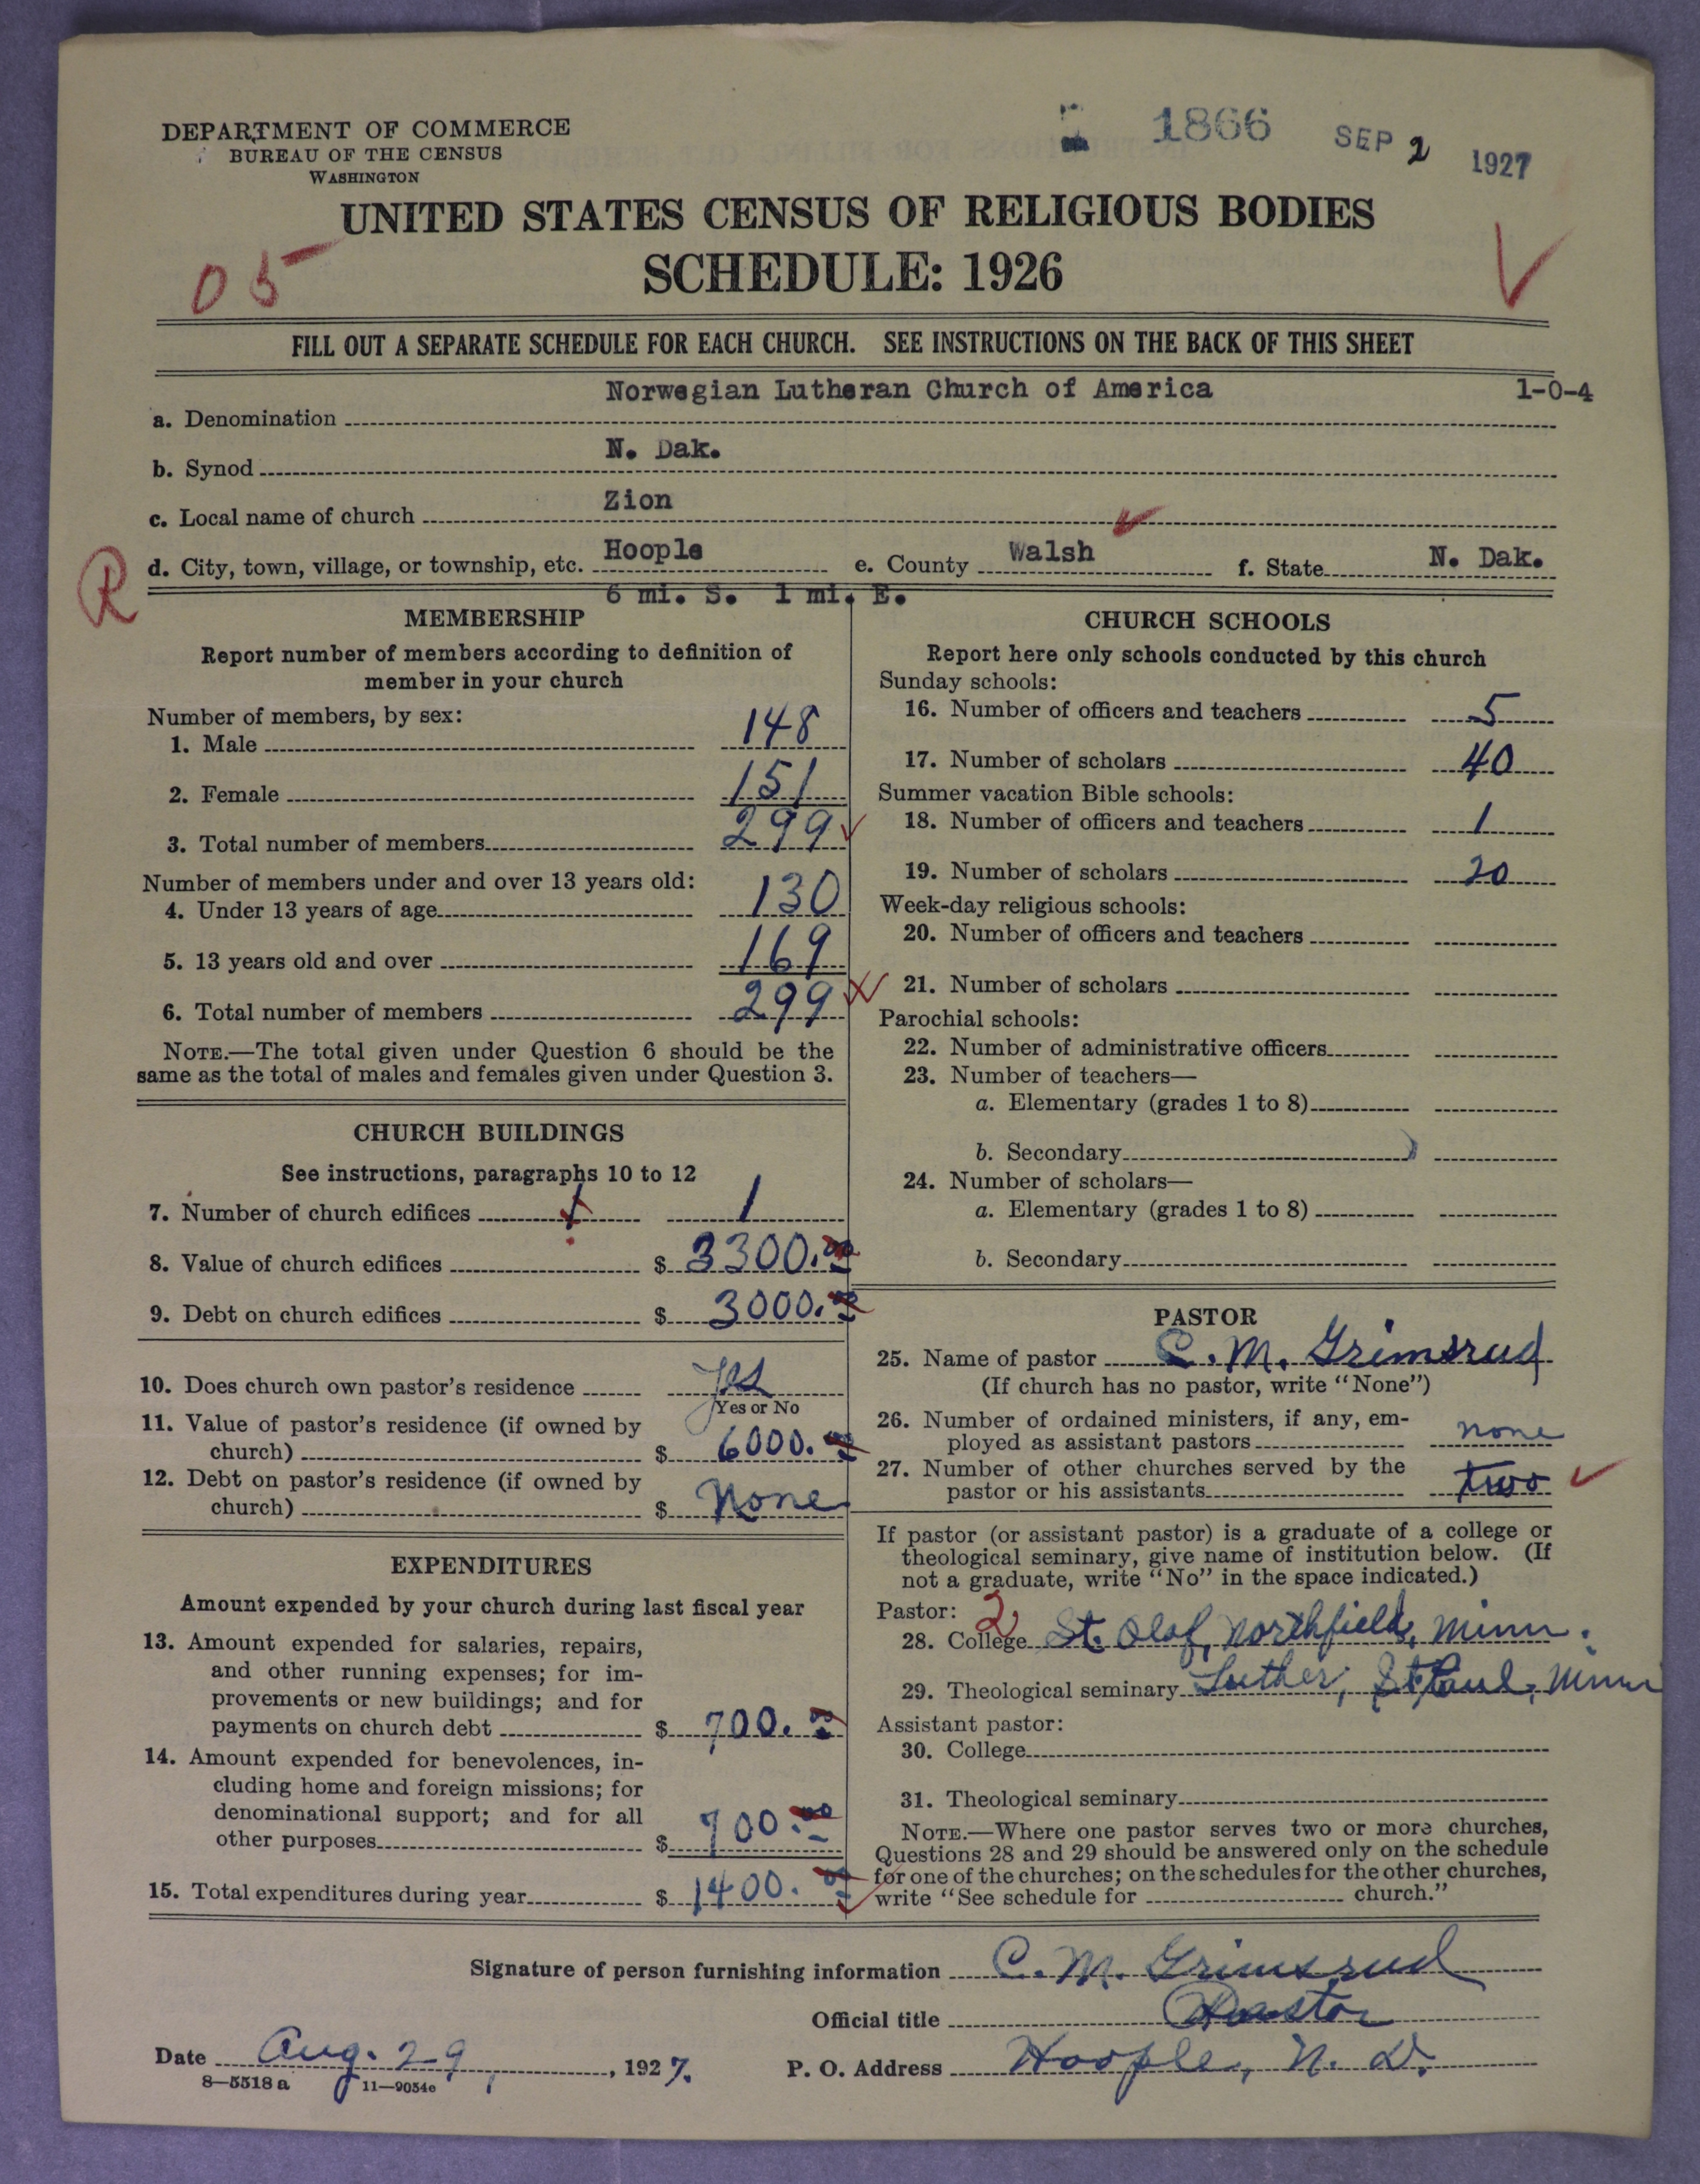 DEPARTMENT OF COMMERCE
BUREAU OF THE CENSUS
WASHINGTON
1866 SEP 2 1927
UNITED STATES CENSUS OF RELIGIOUS BODIES
SCHEDULE: 1926
05
FILL OUT A SEPARATE SCHEDULE FOR EACH CHURCH. SEE INSTRUCTIONS ON THE BACK OF THIS SHEET
a. Denomination Norwegian Lutheran Church of America 1-0-4
b. Synod N. Dak.
c. Local name of church Zion
R
d. City, town, village, or township, etc. Hoople e. County Walsh f. State N. Dak.
6 mi. S. 1 mi. E.
MEMBERSHIP
Report number of members according to definition of
member in your church
Number of members, by sex:
1. Male 148
2. Female 151
3. Total number of members 299
Number of members under and over 13 years old:
4. Under 13 years of age 130
5. 13 years old and over 169
6. Total number of members 299
NOTE.—The total given under Question 6 should be the
same as the total of males and females given under Question 3.
CHURCH BUILDINGS
See instructions, paragraphs 10 to 12
7. Number of church edifices 1
8. Value of church edifices $ 3300.00
9. Debt on church edifices $ 3000.00
10. Does church own pastor's residence Yes
Yes or No
11. Value of pastor's residence (if owned by
church) $ 6000.00
12. Debt on pastor's residence (if owned by
church) $ None
EXPENDITURES
Amount expended by your church during last fiscal year
13. Amount expended for salaries, repairs,
and other running expenses; for im-
provements or new buildings; and for
payments on church debt $ 700.00
14. Amount expended for benevolences, in-
cluding home and foreign missions; for
denominational support; and for all
other purposes $ 700.00
15. Total expenditures during year $ 1400.00
CHURCH SCHOOLS
Report here only schools conducted by this church
Sunday schools:
16. Number of officers and teachers 5
17. Number of scholars 40
Summer vacation Bible schools:
18. Number of officers and teachers 1
19. Number of scholars 20
Week-day religious schools:
20. Number of officers and teachers
21. Number of scholars
Parochial schools:
22. Number of administrative officers
23. Number of teachers—
a. Elementary (grades 1 to 8)
b. Secondary
24. Number of scholars—
a. Elementary (grades 1 to 8)
b. Secondary
PASTOR
25. Name of pastor C. M. Grimsrud
(If church has no pastor, write "None")
26. Number of ordained ministers, if any, em-
ployed as assistant pastors none
27. Number of other churches served by the
pastor or his assistants two
If pastor (or assistant pastor) is a graduate of a college or
theological seminary, give name of institution below. (If
not a graduate, write "No" in the space indicated.)
Pastor: 2
28. College St. Olaf, Northfield, Minn.
29. Theological seminary Luther, St Paul, Minn
Assistant pastor:
30. College
31. Theological seminary
NOTE.—Where one pastor serves two or more churches,
Questions 28 and 29 should be answered only on the schedule
for one of the churches; on the schedules for the other churches,
write "See schedule for church."
Signature of person furnishing information C. M. Grimsrud
Official title Pastor
Date Aug. 29, 1927. P. O. Address Hoople, N. D.
8—5518a 11—9054e